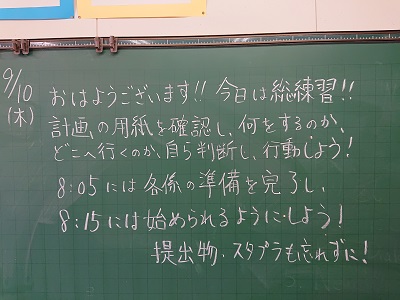 9/10
(木)
おはようございます!! 今日は総練習!!
計画の用紙を確認し、何をするのか、
どこへ行くのか、自ら判断し、行動しよう!
8:05には各係の準備を完了し、
8:15には始められるようにしよう!
提出物・スタプラも忘れずに!